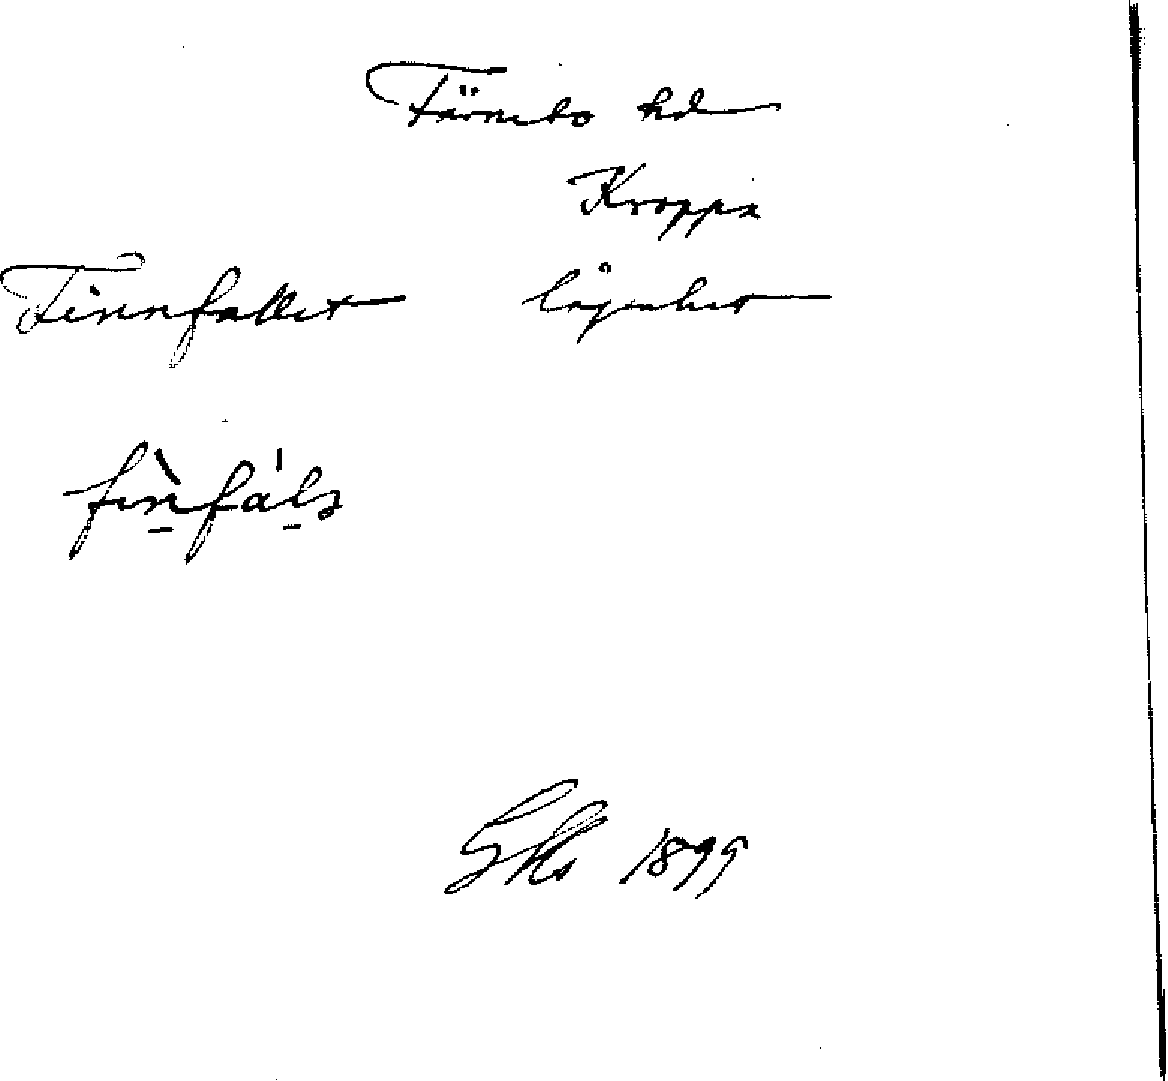 Färnebo hd
Kroppa
Finnfallet lägenhet
fìnfálə
1899